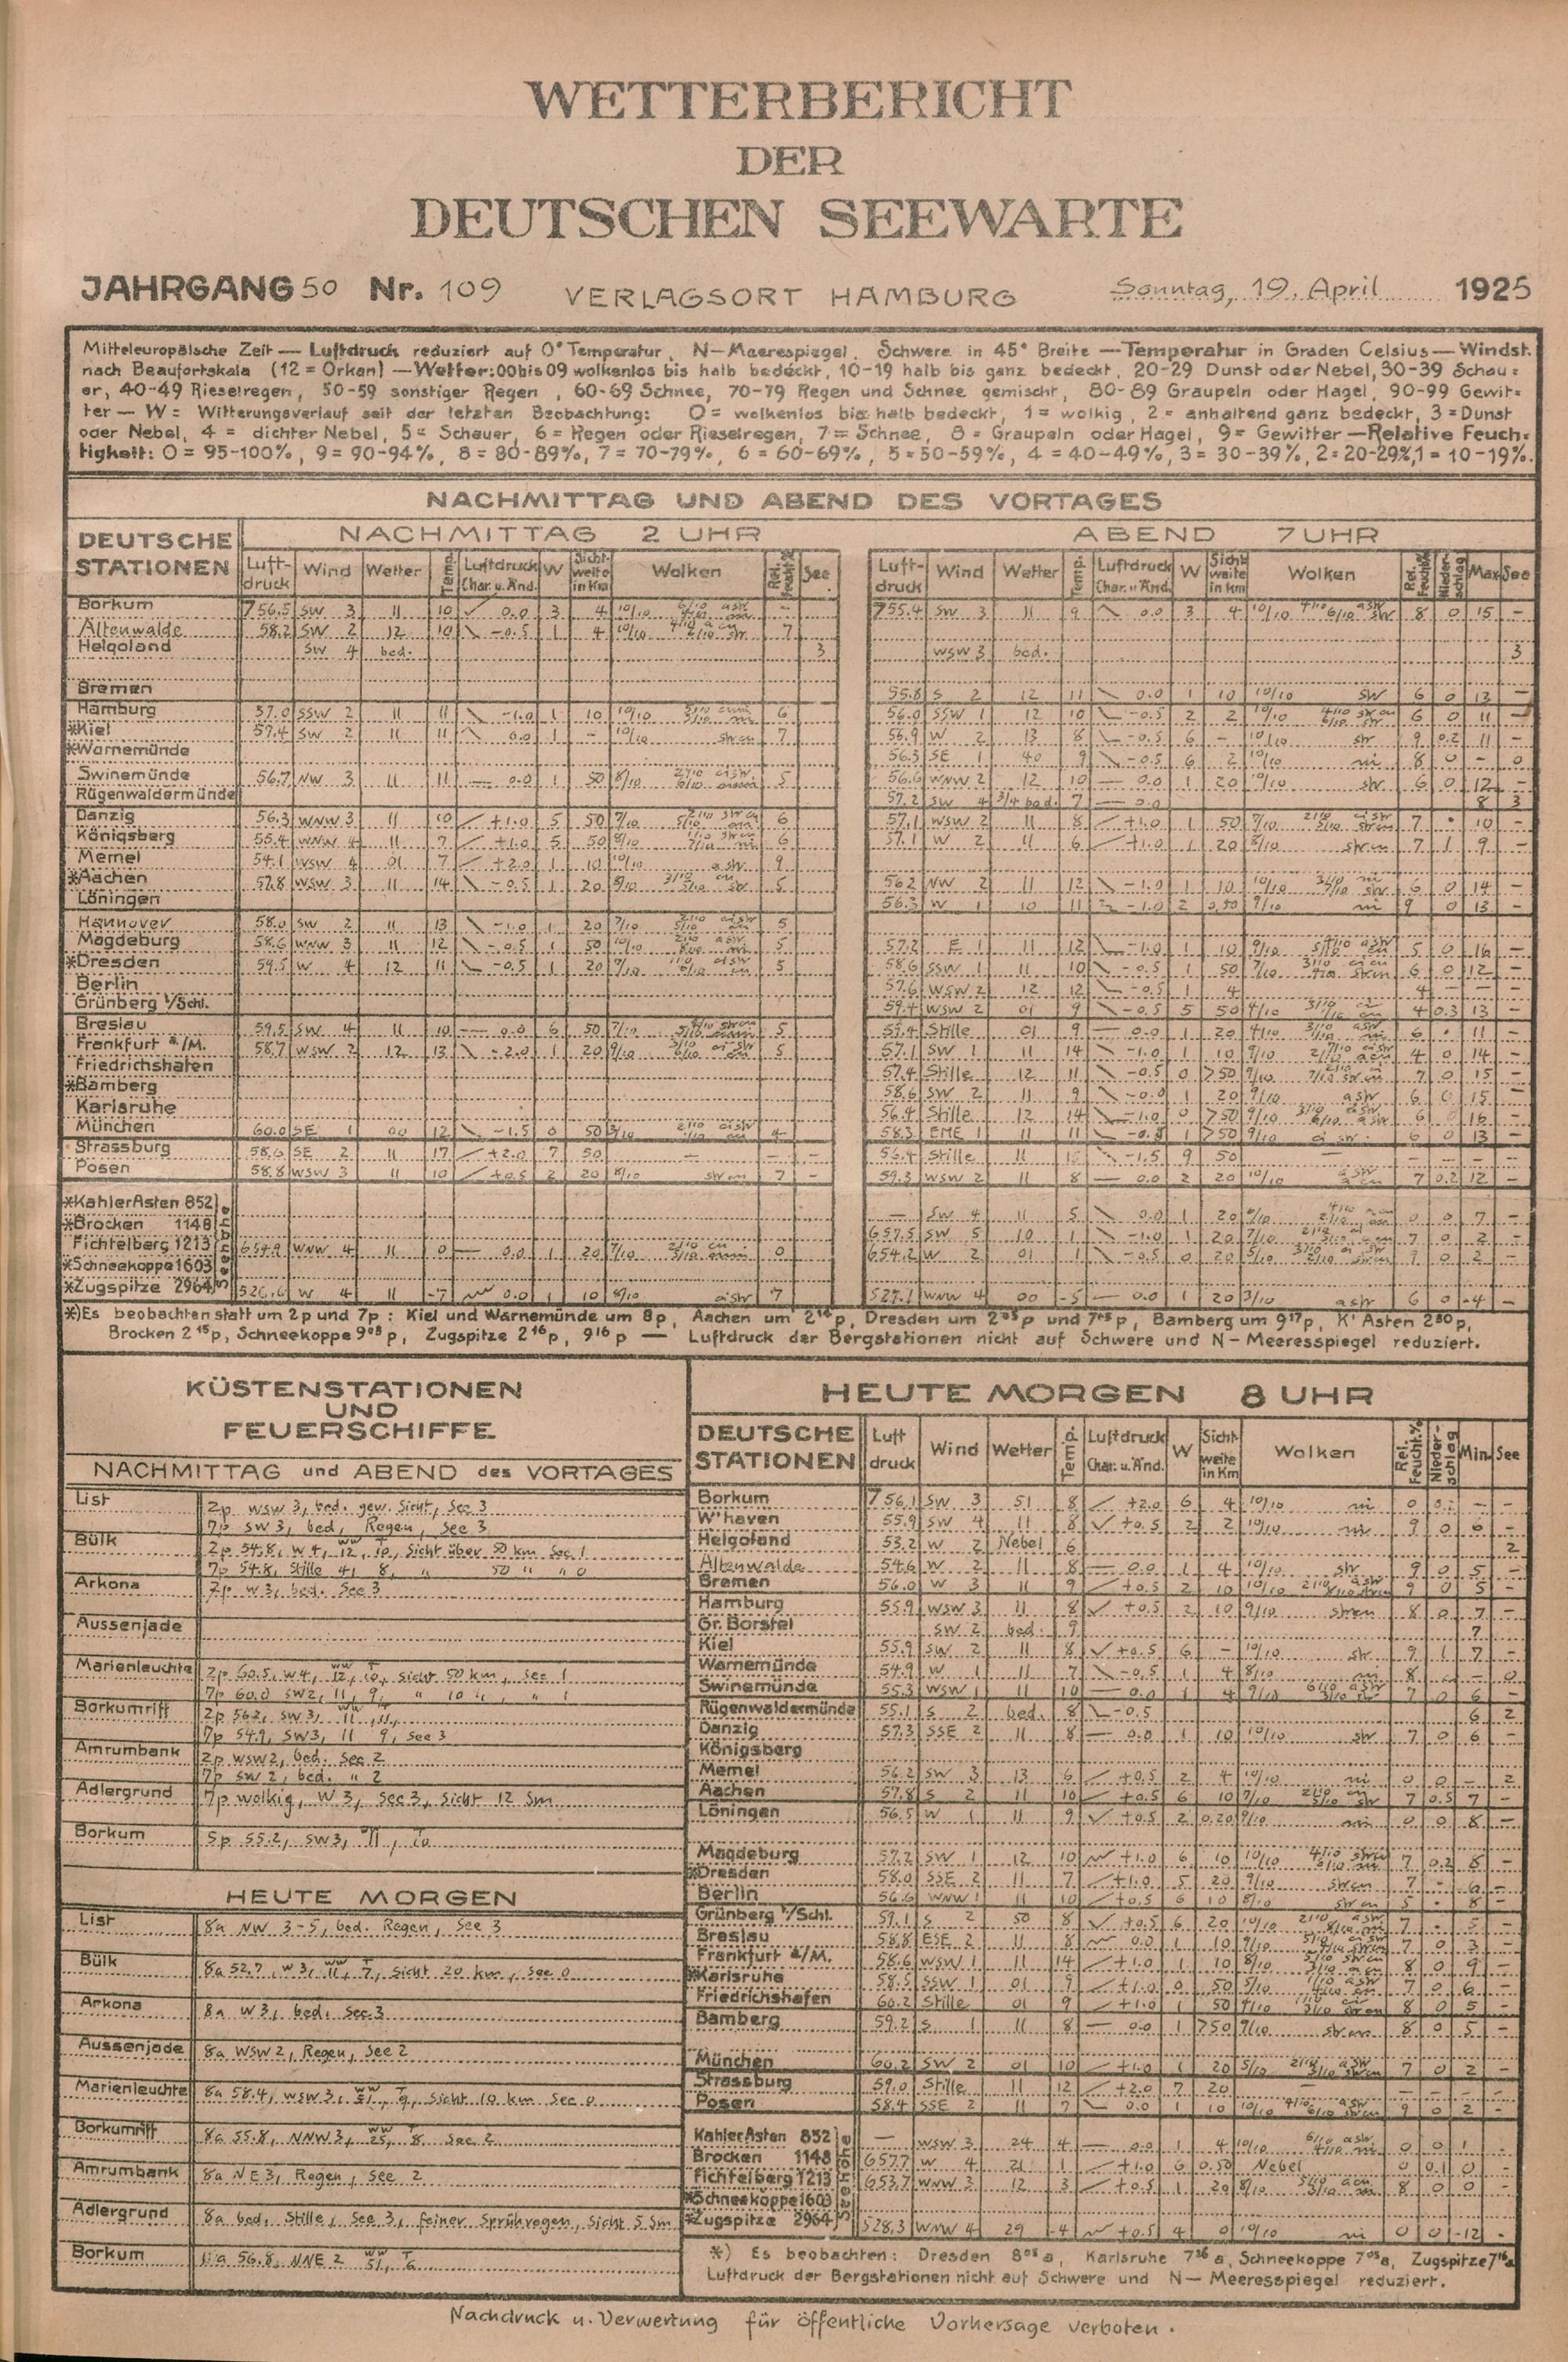 WETTERBERICHT
DER
DEUTSCHEN SEEWARTE
JAHRGANG 50 Nr. 109 VERLAGSORT HAMBURG Sonntag, 19. April 1925
Mitteleuropäische Zeit — Luftdruck reduziert auf 0° Temperatur, N-Meerespiegel, Schwere in 45° Breite — Temperatur in Graden Celsius — Windst.
nach Beaufortskala (12 = Orkan) — Wetter: 00 bis 09 wolkenlos bis halb bedeckt, 10-19 halb bis ganz bedeckt, 20-29 Dunst oder Nebel, 30-39 Schau=
er, 40-49 Rieselregen, 50-59 sonstiger Regen, 60-69 Schnee, 70-79 Regen und Schnee gemischt, 80-89 Graupeln oder Hagel, 90-99 Gewit=
ter — W = Witterungsverlauf seit der letzten Beobachtung: 0 = wolkenlos bis halb bedeckt, 1 = wolkig, 2 = anhaltend ganz bedeckt, 3 = Dunst
oder Nebel, 4 = dichter Nebel, 5 = Schauer, 6 = Regen oder Rieselregen, 7 = Schnee, 8 = Graupeln oder Hagel, 9 = Gewitter — Relative Feuch=
tigkeit: 0 = 95-100%, 9 = 90-94%, 8 = 80-89%, 7 = 70-79%, 6 = 60-69%, 5 = 50-59%, 4 = 40-49%, 3 = 30-39%, 2 = 20-29%, 1 = 10-19%.
NACHMITTAG UND ABEND DES VORTAGES
DEUTSCHE STATIONEN
NACHMITTAG 2 UHR
ABEND 7 UHR
Luft-druck Wind Wetter Temp. Luftdruck Char. u. Änd. W Sicht-weite in Km Wolken Rel. Feucht.% See
Luft-druck Wind Wetter Temp. Luftdruck Char. u. Änd. W Sicht-weite in Km Wolken Rel. Feucht.% Nieder-schlag Max See
Borkum 756.5 SW 3 11 10 0.0 3 4 10/10 – 755.4 SW 3 11 9 0.0 3 4 10/10 8 0 15 –
Altenwalde 58.2 SW 2 12 10 -0.5 1 4 10/10 7
Helgoland SW 4 bed. 3 WSW 3 bed. 3
Bremen 55.8 S 2 12 11 0.0 1 10 10/10 6 0 13 –
Hamburg 57.0 SSW 2 11 11 -1.0 1 10 10/10 6 56.0 SSW 1 12 10 -0.5 2 2 10/10 6 0 11 –
*Kiel 57.4 SW 2 11 11 0.0 1 – 10/10 7 56.9 W 2 13 8 -0.5 6 – 10/10 str 9 0.2 11 –
*Warnemünde 56.3 SE 1 40 9 -0.5 6 2 10/10 ni 8 0 – 0
Swinemünde 56.7 NW 3 11 11 0.0 1 50 8/10 5 56.6 WNW 2 12 10 0.0 1 20 10/10 str 6 0 12 –
Rügenwaldermünde 57.2 SW 4 3/4 bed. 7 0.0 8 3
Danzig 56.3 WNW 3 11 10 +1.0 5 50 7/10 6 57.1 WSW 2 11 8 +1.0 1 50 7/10 7 10 –
Königsberg 55.4 WNW 4 11 7 +1.0 5 50 6 57.1 W 2 11 6 +1.0 1 20 7 1 9 –
Memel 54.1 WSW 4 01 7 +2.0 1 10 10/10 9
*Aachen 57.8 WSW 3 11 14 -0.5 1 20 5 56.2 NW 2 11 12 -1.0 1 10 10/10 6 0 14 –
Löningen 56.3 W 1 10 11 -1.0 2 0.50 9/10 ni 9 0 13 –
Hannover 58.0 SW 2 11 13 -1.0 1 20 7/10 5
Magdeburg 58.6 WNW 3 11 12 -0.5 1 50 10/10 5 57.2 E 1 11 12 -1.0 1 10 9/10 5 0 16 –
*Dresden 59.5 W 4 12 11 -0.5 1 20 5 58.6 SSW 1 11 10 -0.5 1 50 7/10 6 0 12 –
Berlin 57.6 WSW 2 12 12 -0.5 1 4 4 – – –
Grünberg i/Schl. 59.4 WSW 2 01 9 -0.5 5 50 4/10 4 0.3 13 –
Breslau 59.5 SW 4 11 10 0.0 6 50 7/10 5 Stille 01 9 0.0 1 20 4/10 6 11 –
Frankfurt a/M. 58.7 WSW 2 12 13 -2.0 1 20 9/10 5 57.1 SW 1 11 14 -1.0 1 10 9/10 4 0 14 –
Friedrichshafen 57.4 Stille 12 11 -0.5 0 >50 9/10 7 0 15 –
*Bamberg 58.6 SW 2 11 9 -0.0 1 20 9/10 astr 6 0 15 –
Karlsruhe 56.4 Stille 12 14 -1.0 0 >50 9/10 6 16 –
München 60.0 SE 1 00 12 -1.5 0 50 3/10 4 58.3 ENE 1 11 11 1 >50 9/10 6 0 13 –
Strassburg 58.6 SE 2 11 17 +2.0 7 50 – – – 56.4 Stille 11 -1.5 9 50 – – – – –
Posen 58.8 WSW 3 11 10 +0.5 2 20 8/10 7 – 59.3 WSW 2 11 8 0.0 2 20 10/10 7 0.2 12 –
Seehöhe
*Kahler Asten 852 – SW 4 11 5 0.0 1 20 0 0 7 –
*Brocken 1148 657.5 SW 5 10 1 -1.0 1 20 7/10 7 0 2 –
Fichtelberg 1213 654.9 WNW 4 11 0 0.0 1 20 7/10 0 654.2 W 2 01 1 -0.5 0 20 5/10 9 0 2 –
*Schneekoppe 1603
*Zugspitze 2964 526.6 W 4 11 -7 0.0 1 10 8/10 7 527.1 WNW 4 00 -5 0.0 1 20 3/10 astr 6 0 -4 –
*) Es beobachten statt um 2p und 7p: Kiel und Warnemünde um 8p, Aachen um 2¹⁴p, Dresden um 2⁰⁵p und 7⁰⁵p, Bamberg um 9¹⁷p, K' Asten 2³⁰p,
Brocken 2¹⁵p, Schneekoppe 9⁰⁸p, Zugspitze 2¹⁶p, 9¹⁶p — Luftdruck der Bergstationen nicht auf Schwere und N-Meeresspiegel reduziert.
KÜSTENSTATIONEN
UND
FEUERSCHIFFE
NACHMITTAG und ABEND des VORTAGES
List 2p WSW 3, bed. gew. Sicht, See 3
7p SW 3, bed, Regen, See 3
Bülk 2p 54.8, W 4, 12, 10, Sicht über 50 km See 1
7p 54.8, Stille 41, 8, " 50 " " 0
Arkona 2p W 3, bed. See 3
Aussenjade
Marienleuchte 2p 60.5, W 4, 12, 10, Sicht 50 km, See 1
7p 60.0 SW 2, 11, 9, " 10 ", " 1
Borkumriff 2p 56.2, SW 3, 11, 11,
7p 54.9, SW 3, 11 9, See 3
Amrumbank 2p WSW 2, bed. See 2
7p SW 2, bed. " 2
Adlergrund 7p wolkig, W 3, See 3, Sicht 12 Sm
Borkum 5p 55.2, SW 3, 11, 10
HEUTE MORGEN
List 8a NW 3-5, bed. Regen, See 3
Bülk 8a 52.7, W 3, 11, 7, Sicht 20 km, See 0
Arkona 8a W 3, bed. See 3
Aussenjade 8a WSW 2, Regen, See 2
Marienleuchte 8a 58.4, WSW 3, 51, 9, Sicht 10 km See 0
Borkumriff 8a 55.8, NNW 3, 25, 8, See 2
Amrumbank 8a NE 3, Regen, See 2
Adlergrund 8a bed. Stille, See 3, feiner Sprühregen, Sicht 5 Sm
Borkum 11a 56.8, NNE 2 51, 6
HEUTE MORGEN 8 UHR
DEUTSCHE STATIONEN Luft druck Wind Wetter Temp. Luftdruck Char. u. Änd. W Sicht-weite in Km Wolken Rel. Feucht.% Nieder-schlag Min. See
Borkum 756.1 SW 3 51 8 +2.0 6 4 10/10 ni 0 – –
W'haven 55.9 SW 4 11 8 +0.5 2 2 10/10 ni 9 0 6 –
Helgoland 53.2 W 2 Nebel 6 2
Altenwalde 54.6 W 2 11 8 0.0 1 4 10/10 str 9 0 5 –
Bremen 56.0 W 3 11 9 +0.5 2 10 10/10 9 0 5 –
Hamburg 55.9 WSW 3 11 8 +0.5 2 10 9/10 strcu 8 0 7 –
Gr. Borstel SW 2 bed. 9 7
Kiel 55.9 SW 2 11 8 +0.5 6 – 10/10 str 9 1 7 –
Warnemünde 54.9 W 1 11 7 -0.5 1 4 8/10 8 – 0
Swinemünde 55.3 WSW 1 11 10 0.0 1 4 9/10 7 0 6 –
Rügenwaldermünde 55.1 S 2 bed. 8 -0.5 6 2
Danzig 57.3 SSE 2 11 8 0.0 1 10 10/10 str 7 0 6 –
Königsberg
Memel 56.2 SW 3 13 6 +0.5 2 4 10/10 ni 0 0 – 2
Aachen 57.8 S 2 11 10 +0.5 6 10 7/10 7 0.5 7 –
Löningen 56.5 W 1 11 9 +0.5 2 0.20 9/10 ni 0 0 8 –
Magdeburg 57.2 SW 1 12 10 +1.0 6 10 10/10 7 0.2 8 –
*Dresden 58.0 SSE 2 11 7 +1.0 5 20 9/10 strcu 7 6 –
Berlin 56.6 WNW 1 11 10 +0.5 6 10 8/10 strcu 5 8 –
Grünberg i/Schl. 59.1 S 2 50 8 +0.5 6 20 10/10 7 5 –
Breslau 58.8 ESE 2 11 8 0.0 1 10 9/10 7 0 3 –
Frankfurt a/M. 58.6 WSW 1 11 14 +1.0 1 10 8/10 8 0 9 –
*Karlsruhe 58.5 SSW 1 01 9 +1.0 0 50 5/10 7 0 6 –
Friedrichshafen 60.2 Stille 01 9 +1.0 1 50 4/10 8 0 5 –
Bamberg 59.2 S 1 11 8 0.0 1 >50 9/10 strcu 8 0 5 –
München 60.2 SW 2 01 10 +1.0 1 20 5/10 7 0 2 –
Strassburg 59.0 Stille 11 12 +2.0 7 20 – – – – –
Posen 58.4 SSE 2 11 7 0.0 1 10 10/10 9 0 2 –
Seehöhe
Kahler Asten 852 – WSW 3 24 4 0.0 1 4 10/10 0 0 1 –
Brocken 1148 657.7 W 4 21 1 +1.0 6 0.50 Nebel 0 0.1 0 –
Fichtelberg 1213 653.7 WNW 3 12 3 +0.5 1 20 8/10 8 0 0 –
*Schneekoppe 1603
*Zugspitze 2964 528.3 WNW 4 29 -4 +0.5 4 0 10/10 ni 0 0 -12 –
*) Es beobachten: Dresden 8⁰⁵a, Karlsruhe 7³⁶a, Schneekoppe 7⁰³a, Zugspitze 7¹⁶a
Luftdruck der Bergstationen nicht auf Schwere und N-Meeresspiegel reduziert.
Nachdruck u. Verwertung für öffentliche Vorhersage verboten.